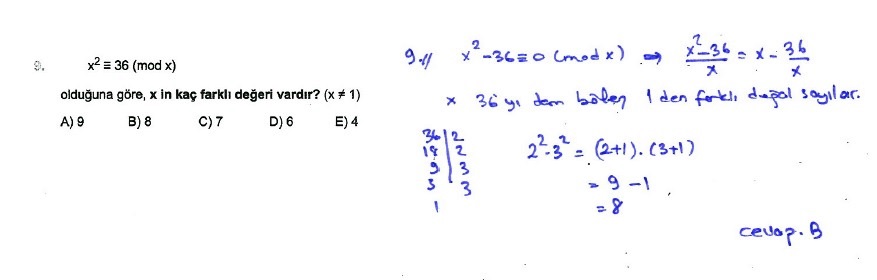 9.
x² ≡ 36 (mod x)
olduğuna göre, x in kaç farklı değeri vardır? (x ≠ 1)
A) 9 B) 8 C) 7 D) 6 E) 4
9.// x²-36≡0 (mod x) ⇒ x²-36/x = x - 36/x
x 36 yı tam bölen 1 den farklı doğal sayılar.
36|2
18|2
9|3
3|3
1
2².3² = (2+1).(3+1)
= 9 -1
= 8
cevap. B